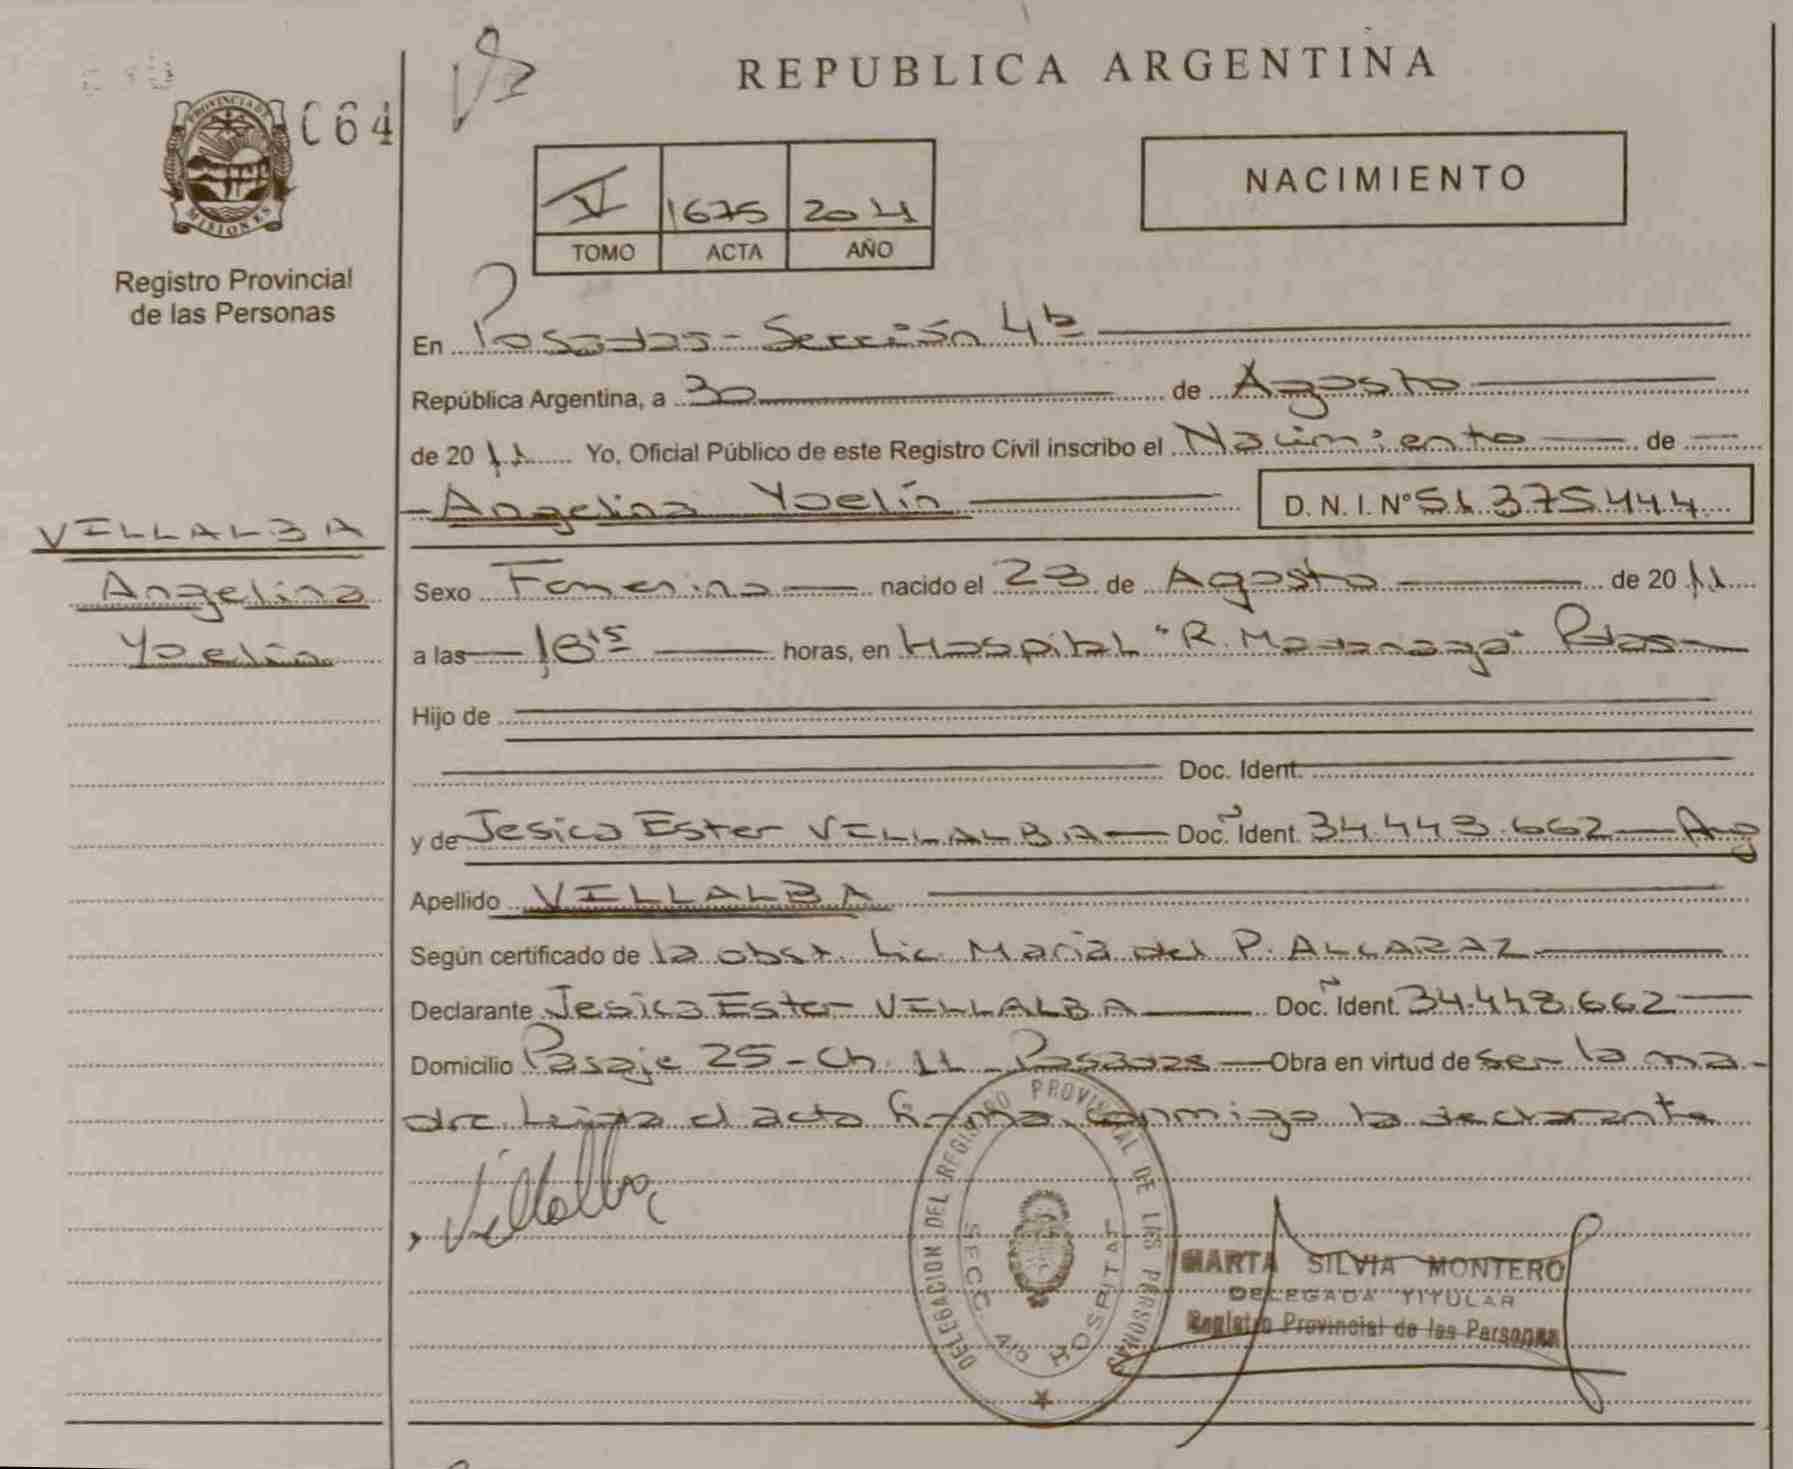 REPUBLICA ARGENTINA
PROVINCIA DE MISIONES
C64
Registro Provincial
de las Personas
NACIMIENTO
V 1675 2011
TOMO ACTA AÑO
En Posadas - Sección 4ta
República Argentina, a 30 de Agosto
de 20 11 Yo, Oficial Público de este Registro Civil inscribo el Nacimiento de
Angelina Yoelín D. N. I. N° 51.375.444
VILLALBA
Angelina
Yoelín
Sexo Femenino nacido el 23 de Agosto de 20 11
a las 18 15 horas, en Hospital "R. Madariaga" Pdas
Hijo de
Doc. Ident.
y de Jesica Ester VILLALBA Doc. Ident. 34.448.662 Arg
Apellido VILLALBA
Según certificado de la obst. Lic. María del P. ALCARAZ
Declarante Jesica Ester VILLALBA Doc. Ident. 34.448.662
Domicilio Pasaje 25 - Ch. 11 - Posadas Obra en virtud de ser la ma-
dre. Leida el acta firma conmigo la declarante
Villalba
DELEGACION DEL REGISTRO PROVINCIAL DE LAS PERSONAS
SECC. 4ta HOSPITAL
MARTA SILVIA MONTERO
DELEGADA TITULAR
Registro Provincial de las Personas